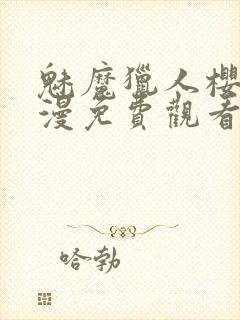 魅魔獵人櫻
漫免費觀看
哈勃